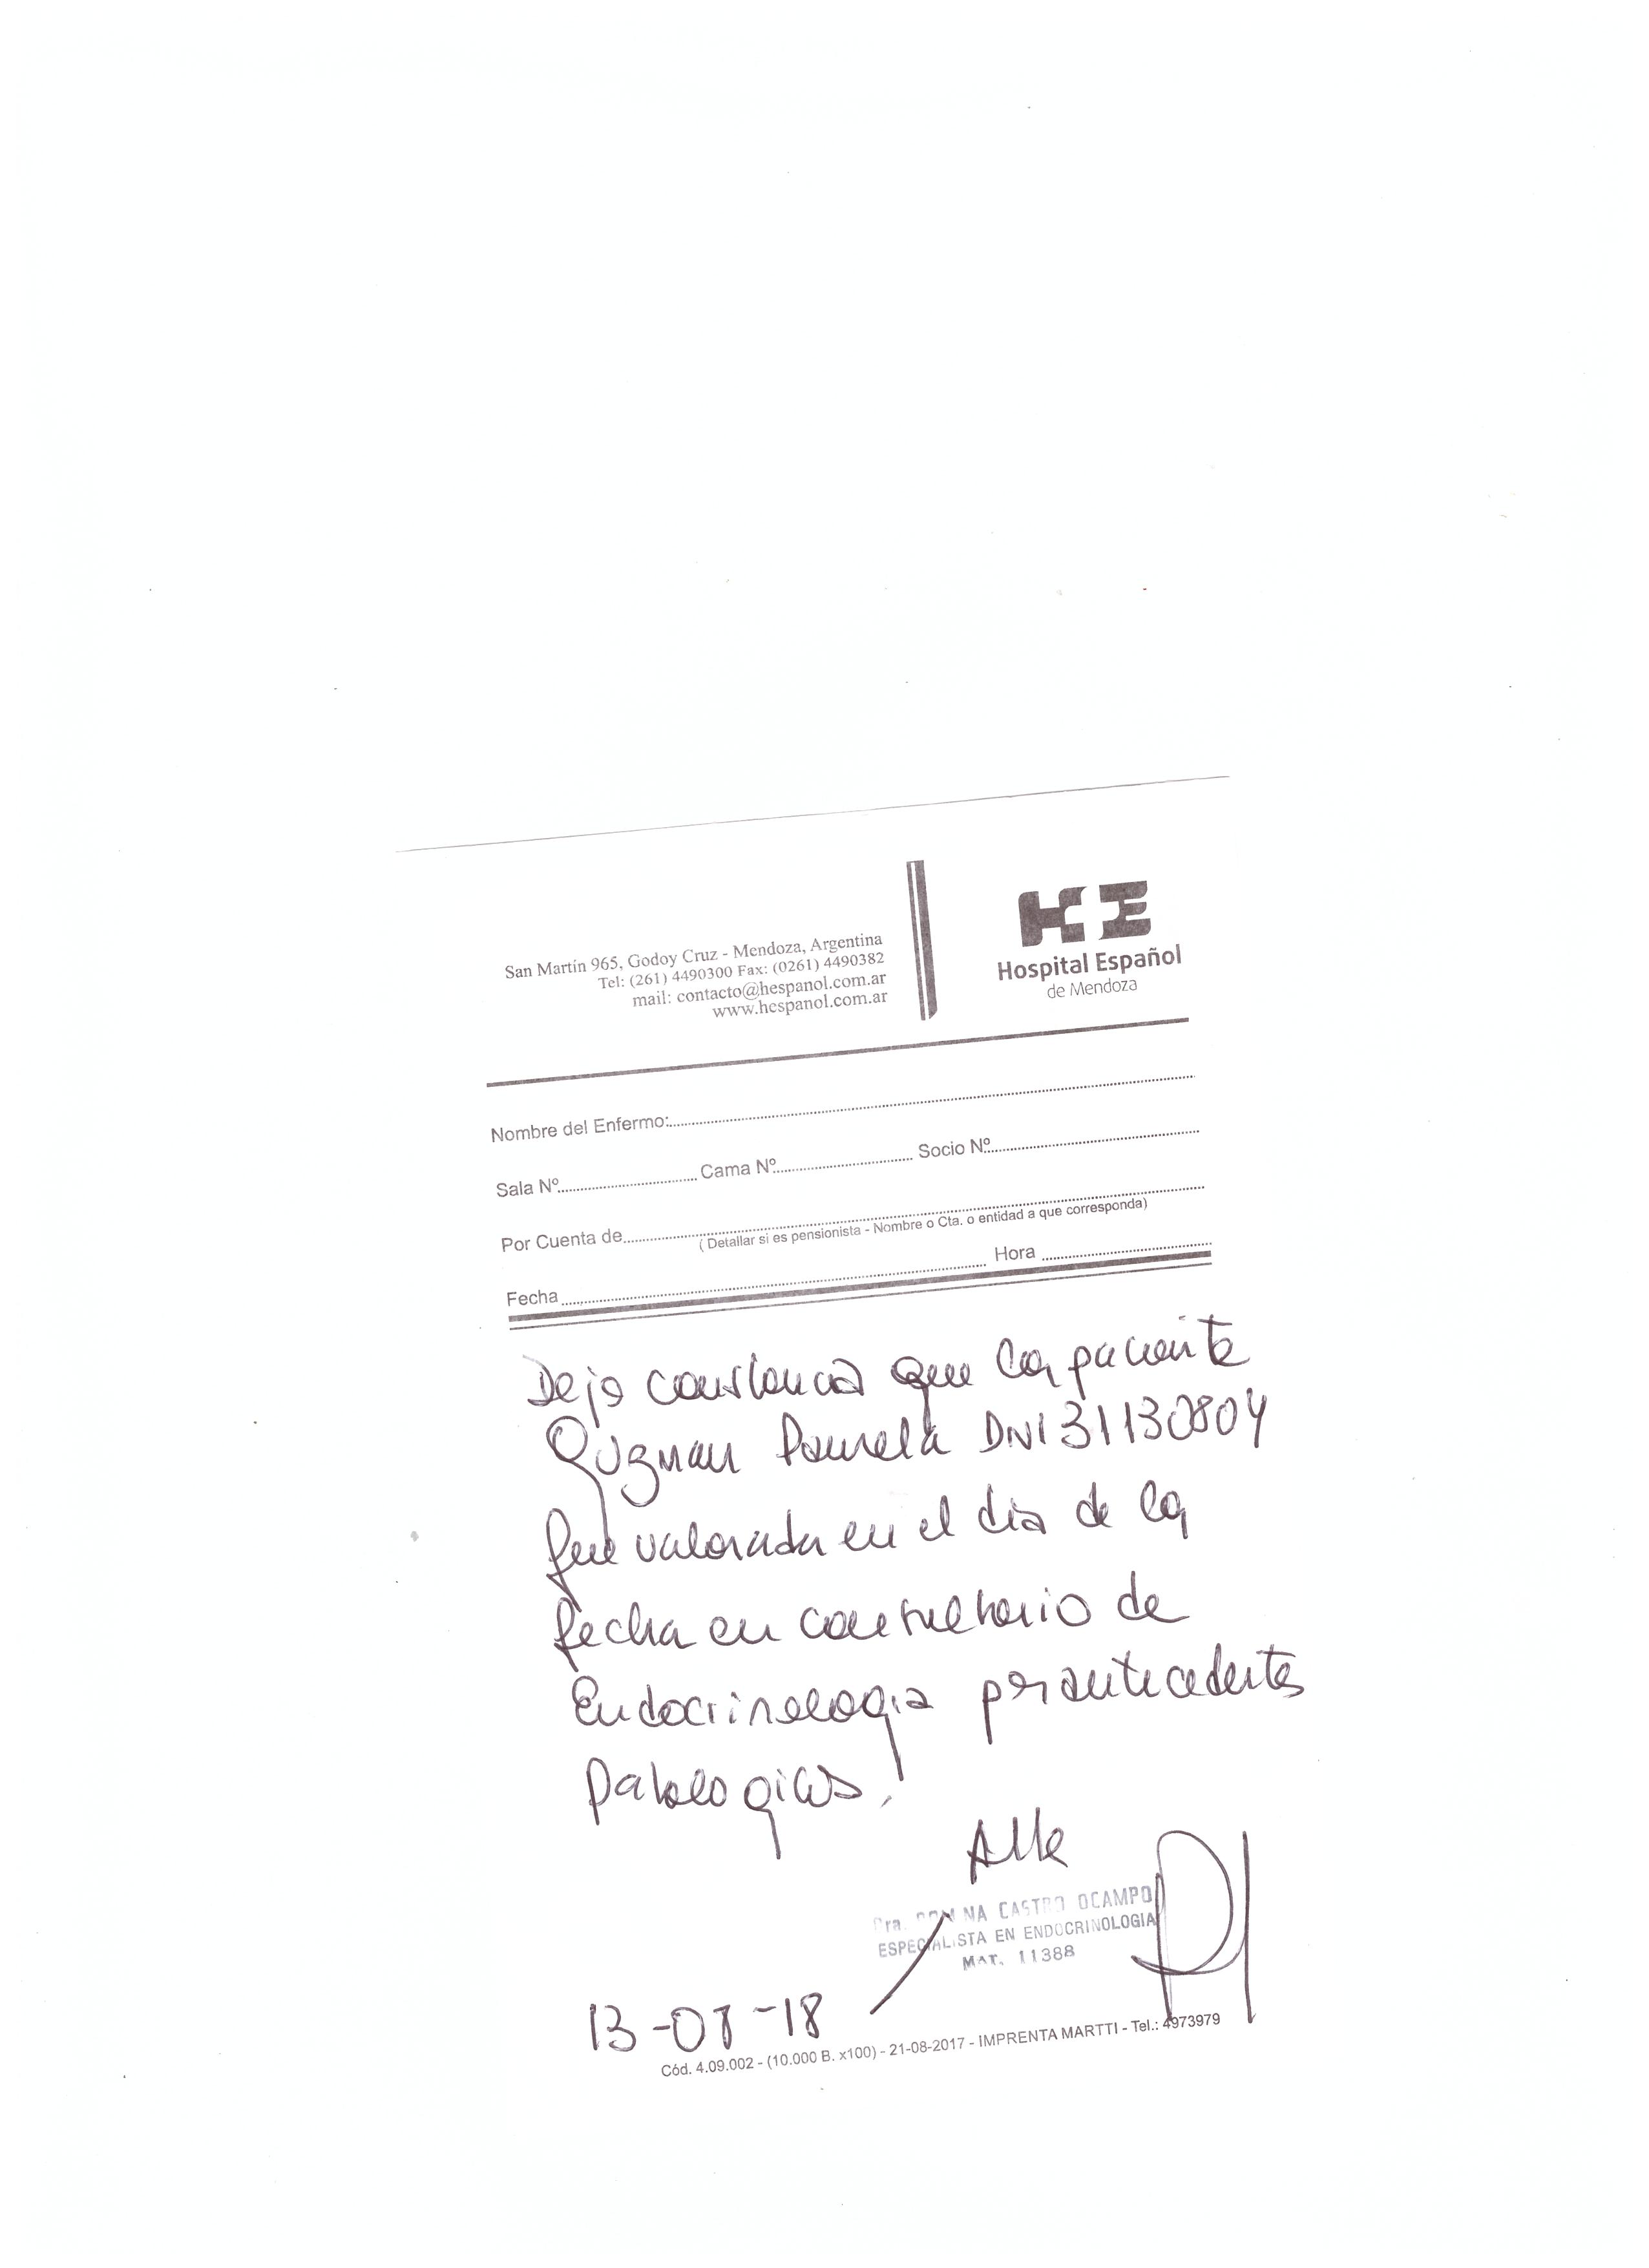 San Martín 965, Godoy Cruz - Mendoza, Argentina
Tel: (261) 4490300 Fax: (0261) 4490382
mail: contacto@hespanol.com.ar
www.hespanol.com.ar
HE
Hospital Español
de Mendoza
Nombre del Enfermo:
Sala Nº Cama Nº Socio Nº
Por Cuenta de
( Detallar si es pensionista - Nombre o Cta. o entidad a que corresponda)
Fecha Hora
Dejo constancia que la paciente
Guzman Pamela DNI 31130804
fue valorada en el dia de la
fecha en consultorio de
Endocrinologia por antecedentes
Patologicos.
Atte
Dra. CASTRO OCAMPO
ESPECIALISTA EN ENDOCRINOLOGIA
MAT. 11388
13-08-18
Cód. 4.09.002 - (10.000 B. x100) - 21-08-2017 - IMPRENTA MARTTI - Tel.: 4973979